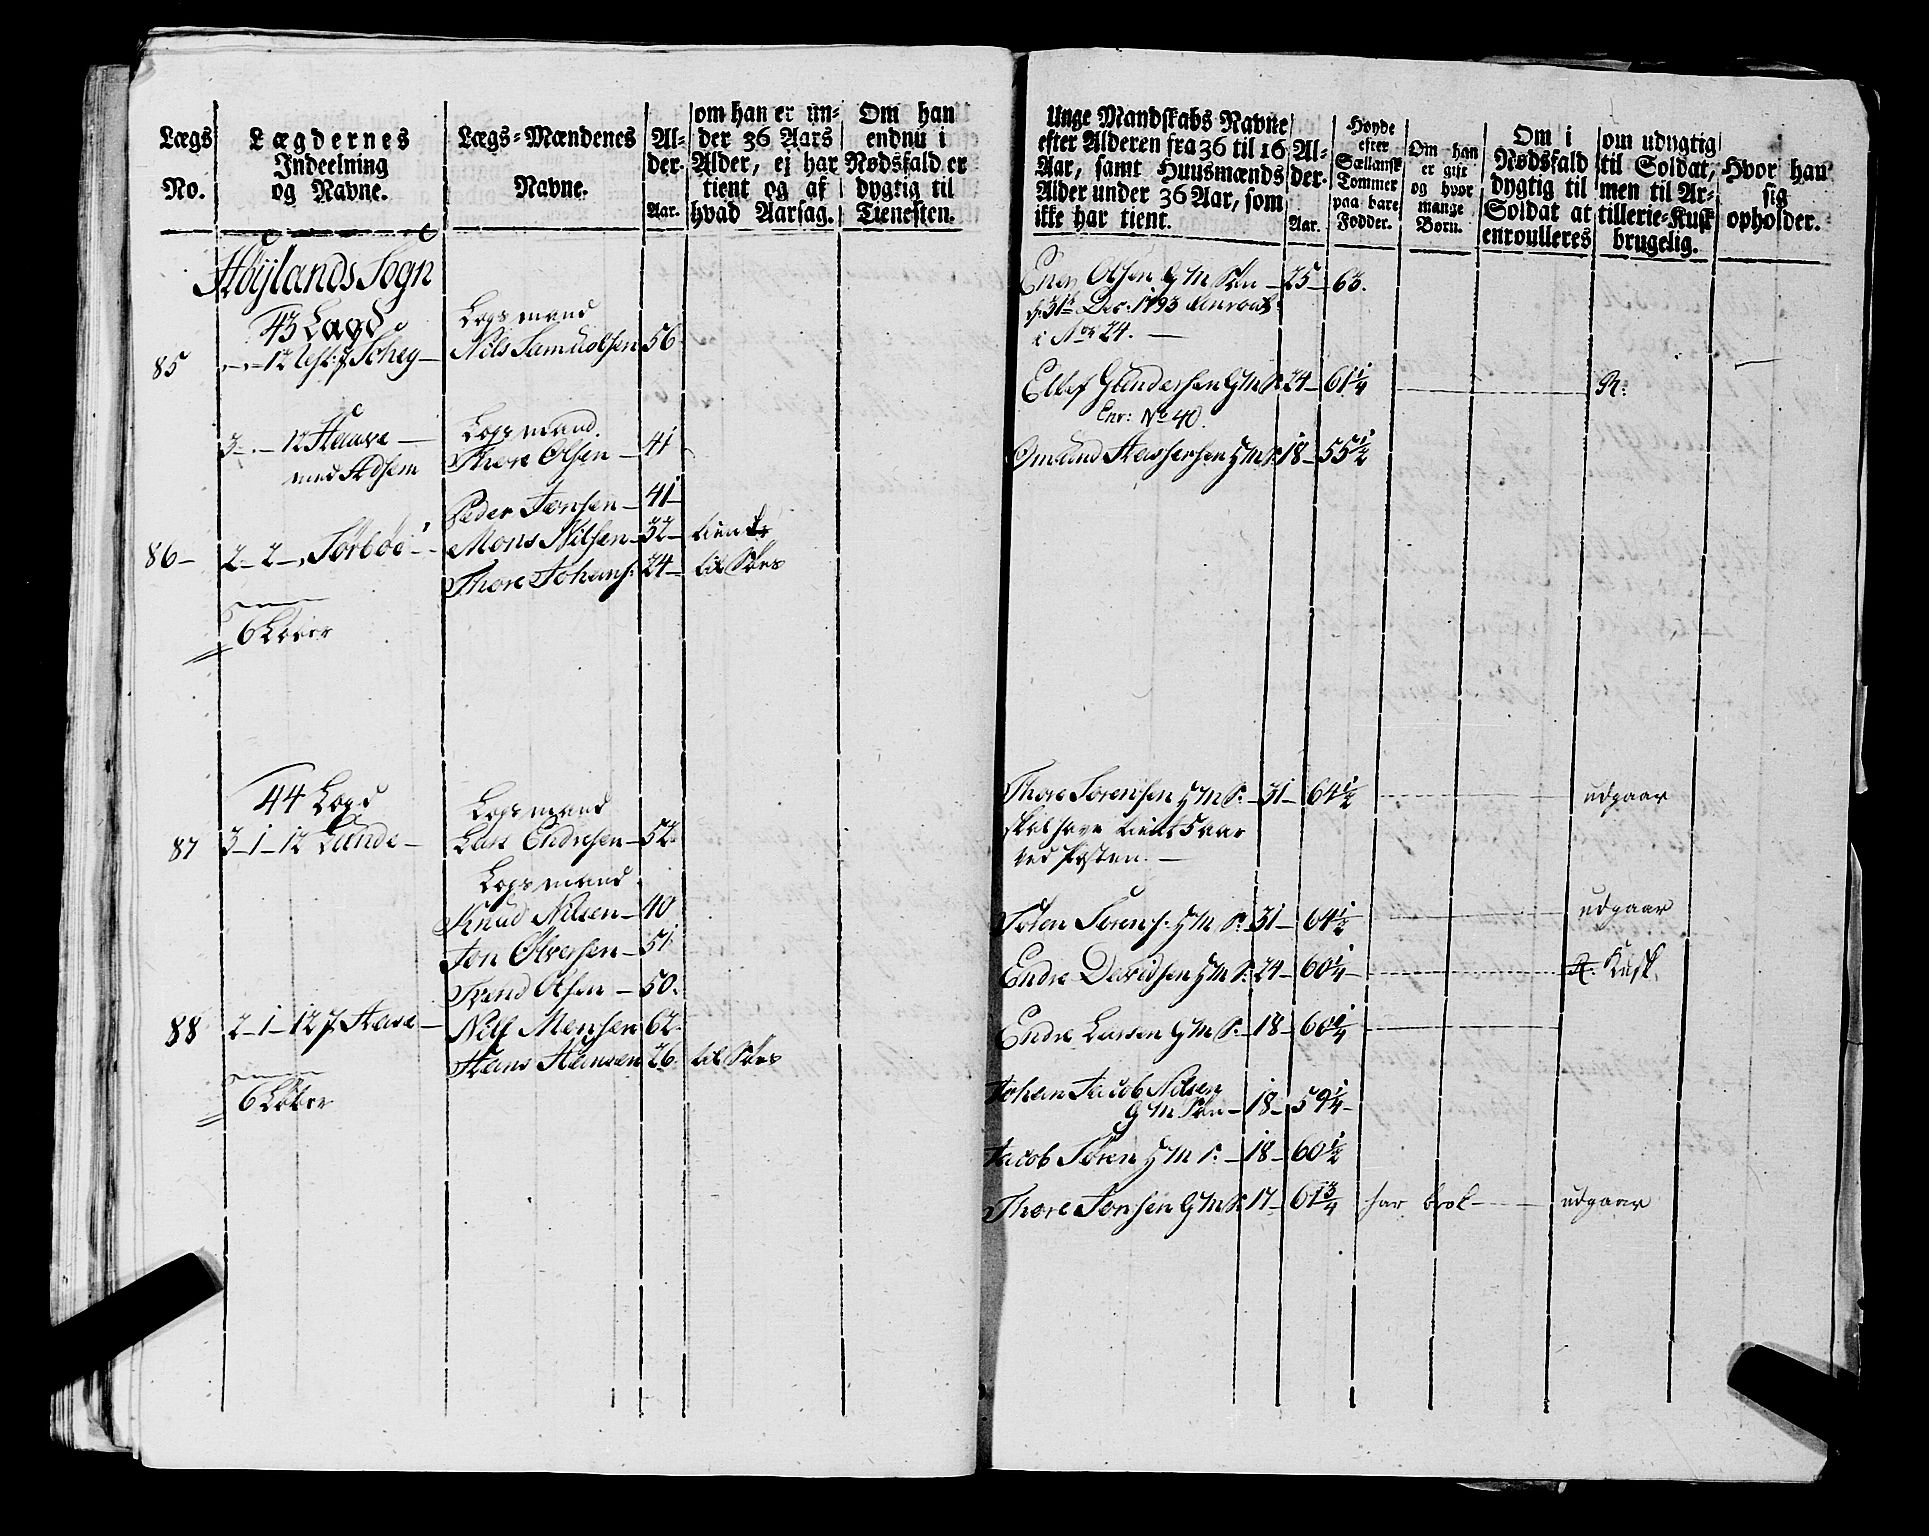 Lægs No.
Lægdernes Indeelning og Navne.
Lægs-Mændenes Navne.
Al-der. Aar.
om han er un-
der 36 Aars
Alder, ej har
tient og af
hvad Aarsag.
Om han
endnu i
Nødsfald er
dygtig til
Tienesten.
Høÿlands Sogn
43 Lægd
Lægsmand
85 12 Scheg Nils Samuelsen 56
Lægsmand
3 12 Hauve Thore Olsen 41
med Adsem
Peder Jonsen 41
86 2 2 Sørboe Mons Nilsen 32 tient
Thore Johans: 24 til Søes
6 Løber
44 Lægd
Lægsmand
87 3 1 12 Lunde Lars Endresen 52
Lægsmand
Knud Nilsen 40
Jon Olversen 51
Svend Olsen 50
88 2 1 12 Have Nils Monsen 62
Hans Hansen 26 til Søes
6 Løber
Unge Mandskabs Navne
efter Alderen fra 36 til 16
Aar, samt Huusmænds
Alder under 36 Aar, som
ikke har tient.
Al-der. Aar.
Høyde
efter
Sællansk
Tommer
paa bare
Fødder.
Om han
er gift
og hvor
mange
Børn.
Om i
Nødsfald
dygtig til
Soldat at
enroulleres
om udygtig
til Soldat,
men til Ar-
tillerie-Kusk
brugelig.
Hvor han
sig
opholder.
Olsen G M Søn 25 63.
31te Dec: 1793 enroul:
i No 24.
Ellef Gundersen G M S 24 61 1/4 R:
Enr: No 40.
Omund Assersen H M S 18 55 1/2
Thore Sørensen H M S. 31 64 1/2 udgaar
skal have tient 5 aar
ved Posten.
Sørens: H M S. 31 64 1/2 udgaar
Endre Davidsen H M S. 24 60 1/4 Kusk.
Endre Larsen G M S. 18 60 1/4
Johan Jacob Nilsen
G M Søn 18 59 1/4
Jacob Sören H M S. 18 60 1/2
Thore Jonsen G M S. 17 61 3/4 har brok udgaar